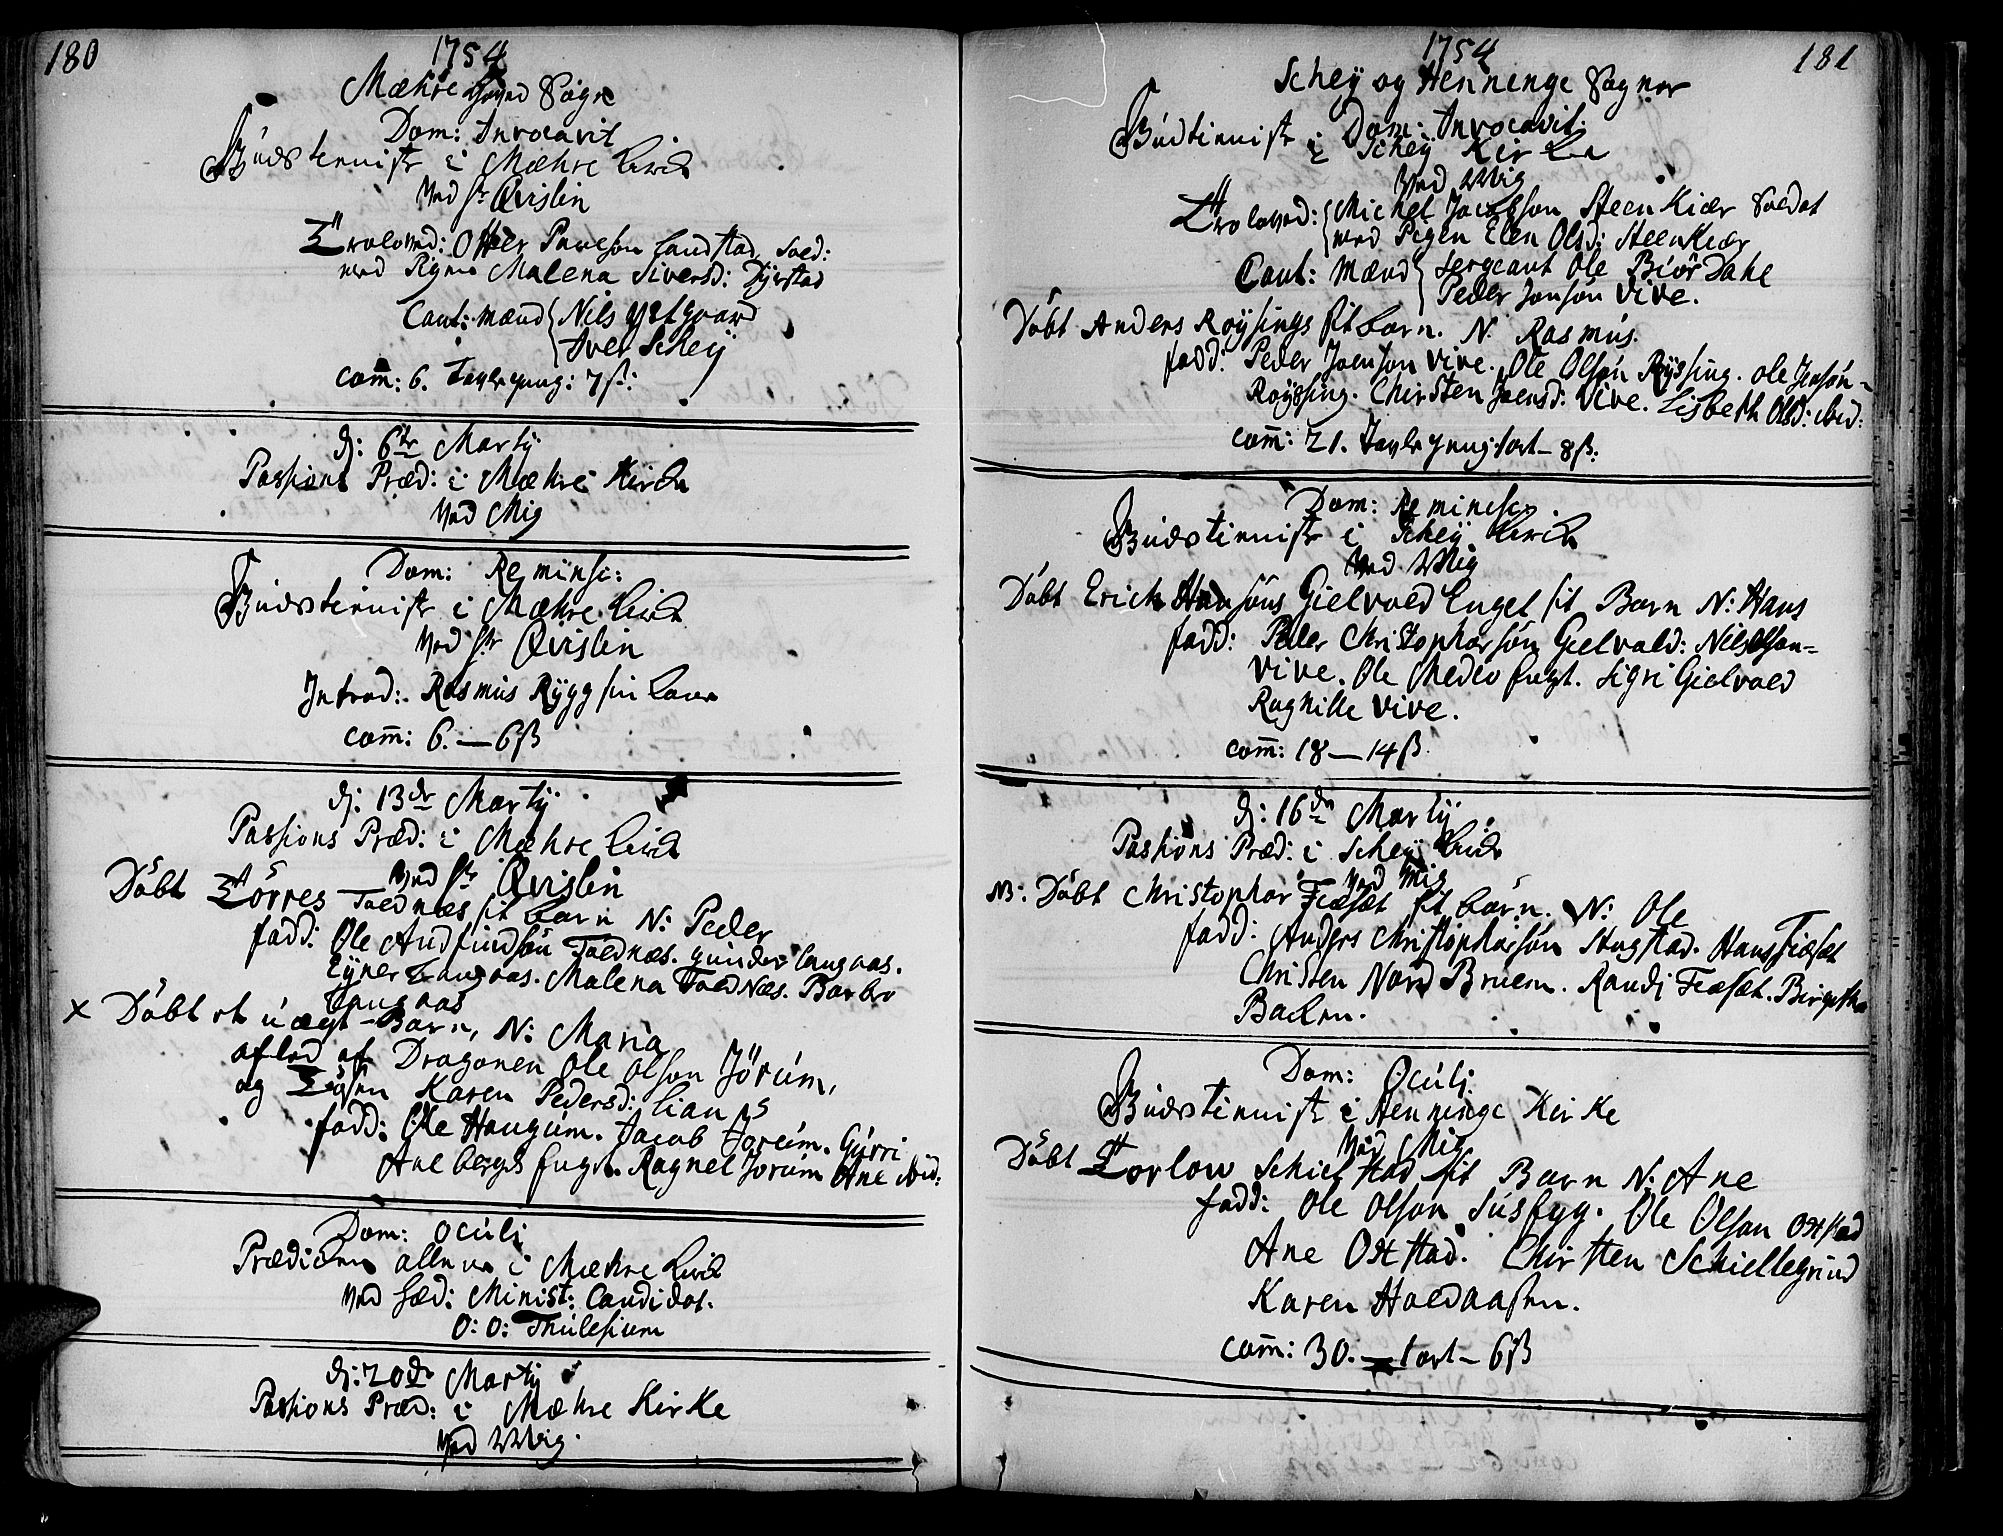 180
1754
Mæhre Hoved Sogn
Dom: Invocavit
Gudstienist i Mæhre Kirch
Ved Hr Qvislin
Troloved: Otter Paulson Landstad, Sold:
med Pigen Malena Siversd: Dyrstad
Caut: Mænd Nils Østgaard
Iver Scheij
com̄: 6. Tavlepeng: 7ß:
d: 6te Martij
Passions Præd: i Mæhre Kirche
Ved Mig
Dom: Reminsc:
Gudstienist i Mæhre Kirch
Ved Hr Qvislin
Introd: Rasmus Rygg sin Kone
com̄: 6. — 6ß
d: 13de Martij
Passions Præd: i Mæhre Kirch
Ved Hr Qvislin
Döbt Törres Foldnæs sit barn N: Peder
fadd: Ole Andfindsön Foldnæs. Gunder Langaas.
Eyner Langaas. Malena Foldnæs. Barbro
Langaas
x Döbt et uægt-Barn, N: Maria
afled af Dragonen Ole Olson Jörum,
og Pigen Karen Pedersd: Lian
fadd: Ole Haugum. Jacob Jorum. Gurri
Ane bergs Eyet. Ragnel Jorum Ane ibid:
Dom: Oculi
Prædiken allene i Mæhre Kirch
Ved Sæd: Minist: Candidat.
O: O: Thulesium
d: 20de Martij
Passions Præd: i Mæhre Kirke
Ved Mig.
1754
181
Scheij og Henninge Sogner
Dom: Invocavit.
Gudtienist i Scheij Kirke
Ved Mig
Troloved: Michel Jacobson SteenKiær Soldat
med Pigen Elen Olsd: SteenKiær
Caut: Mænd Sergeant Ole Biör Dahl
Peder Jonsön Vive.
Döbt Anders Röysings sit barn. N. Rasmus.
fadd: Peder Joenson Vive. Ole Olsön Röyssing. Ole Jensön
Röyssing. Chirsten Joensd: Vive. Lisbeth Olsd: ibid:
com̄: 21. Tavlepeng: tart - 8ß:
Dom: Reminsc.
Gudstienist i Scheij Kirch
Ved Mig
Döbt Erich Hansöns Gielvold Enget sit Barn N: Hans
fadd: Peder Christopharsön Gielvold: Nils Olson
Vive. Ole Medeo Eyet. Sigri Gielvold
Ragnille Vive.
com̄: 18 — 14ß
d: 16de Martij
Passions Præd: i Scheij Kirch
Ved Mig
NB: Döbt Christophar Fiæsæt sit barn. N: Ole
fadd: Anders Christopharsön Stugstad. Hans Fiæsæt
Christen Nord Bruem. Randi Fiæsæt. Birgetha
Backen.
Dom: Oculi
Gudstienist i Henninge Kirke
Ved Mig
Döbt Torlow Schiefstad sit Barn N: Ane
fadd: Ole Olson Susbyg. Ole Olson Oxstad
Ane Oxstad. Chirsten Schiellegrind
Karen Holdaasen.
com̄: 30. — tart - 6ß